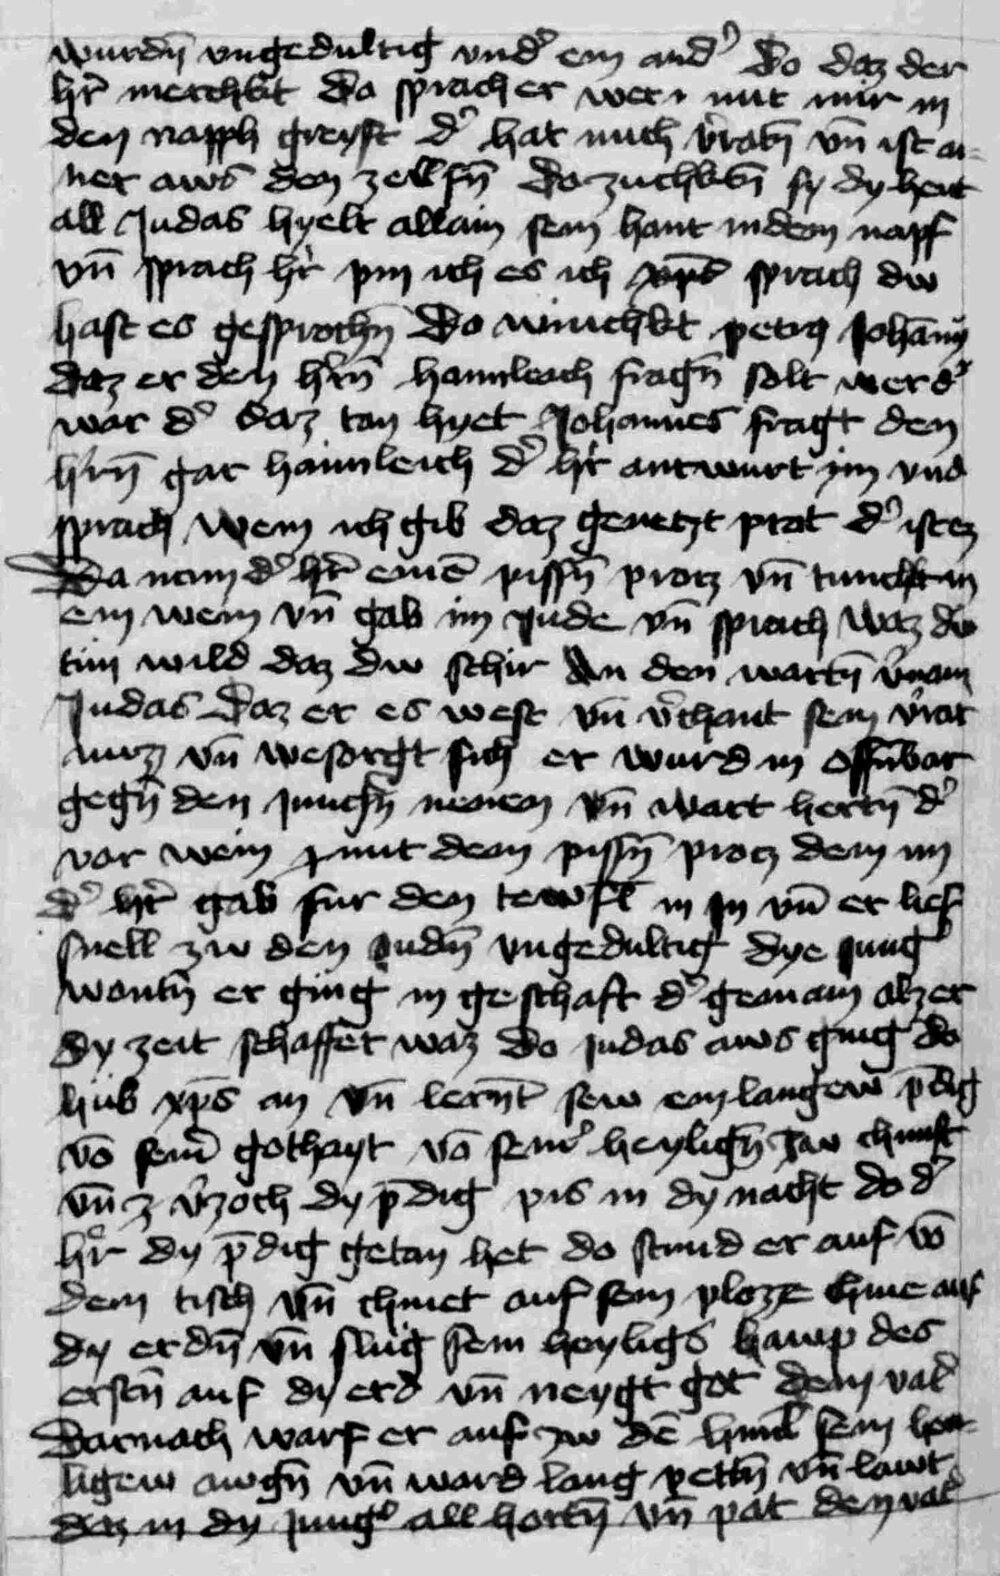 wurdn̄ vngedultig vnd' ein and' do daz der
hr̄ merchkt da sprach er wer mit mir in
den napph greyft d' hat mich v'ratn̄ vn̄ ist ai-
ner aws den zellfn̄ da zuchkn̄ sy dy hent
all Judas hyelt allain sein hant in dem napf
vn̄ sprach hr̄ pin ich es ich xp̄s sprach dw
hast es gesprochn̄ Do winchkt petrꝰ Johāni
daz er den hr̄n̄ haimleich fragn̄ solt wer d'
wār d' daz tan hyet Johannes fragt den
hr̄n̄ gar haimleich d' hr̄ antwurt im vnd
sprach wem ich gib daz genetzt prat d' istez
Da nam d' hr̄ einē pissn̄ protz vn̄ tunckt in
ein wein vn̄ gab im Jude vn̄ sprach waz dw
tun wild daz dw schir An den wartn̄ v'nam
Judas daz er es west vn̄ v'chant sein v'rat
nuzz vn̄ wesorgt sich er wurd in offn̄bar
gegn̄ den jungn̄ nenen vn̄ wart hertn̄ d'
vor wein mit dem pissn̄ protz dem im
d' hr̄ gab fur den tewfl in in vn̄ er lief
snell zw den Judn̄ vngedultig dye jung'
wantn̄ er ging in geschaft d' gemain alz er
dy zeit schaffer waz do judas aws ging do
hub xp̄s an vn̄ lernt sew ein langew p̄dig
vō sein' gothayt vō sein' heylign̄ zw chunft
vn̄ z v'zoch dy p̄dig pis in dy nacht do d'
hr̄ dy p̄dig getan het do stund er auf vō
dem tisch vn̄ chniet auf sein ploze chnie auf
dy erdn̄ vn̄ slug sein heyligs haup des
erstn̄ auf dy erd vn̄ neygt got dem vat'
Darnach warf er auf zw dē himl̄ sein hei-
ligew awgn̄ vn̄ ward lang pettn̄ vn̄ lawt
daz in dy jung' all hortn̄ vn̄ pat den vat'